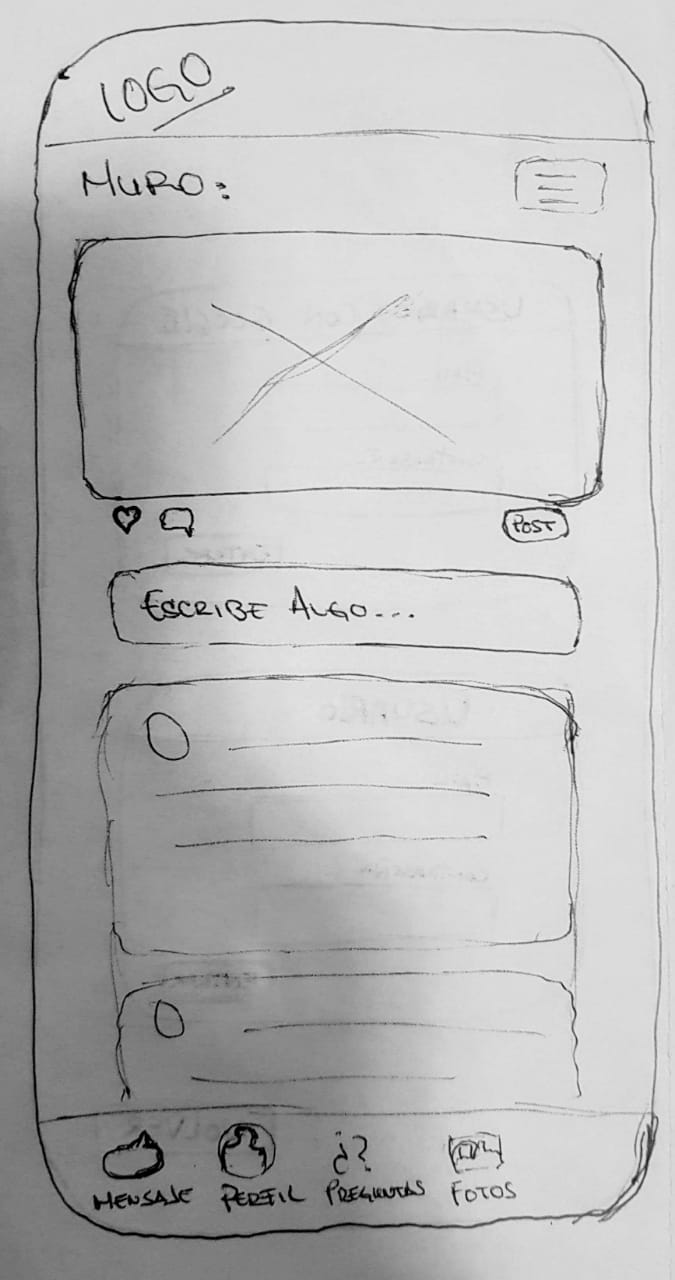 LOGO
MURO:
POST
ESCRIBE ALGO...
¿?
MENSAJE PERFIL PREGUNTAS FOTOS